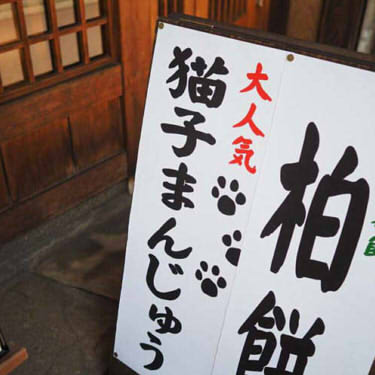 柏餅
大人気
猫子まんじゅう